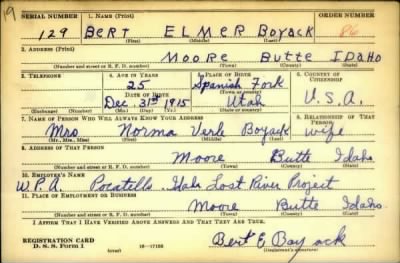 19
SERIAL NUMBER 1. NAME (Print) ORDER NUMBER
129 BERT ELMER BOYACK 86
(First) (Middle) (Last)
2. ADDRESS (Print)
MOORE BUTTE IDAHO
(Number and street or R. F. D. number) (Town) (County) (State)
3. TELEPHONE 4. AGE IN YEARS 5. PLACE OF BIRTH 6. COUNTRY OF CITIZENSHIP
25 Spanish Fork
DATE OF BIRTH (Town or county)
Dec. 31st 1915 Utah U.S.A.
(Exchange) (Number) (Mo.) (Day) (Yr.) (State or country)
7. NAME OF PERSON WHO WILL ALWAYS KNOW YOUR ADDRESS 8. RELATIONSHIP OF THAT PERSON
Mrs Norma Verle Boyack wife
(Mr., Mrs., Miss) (First) (Middle) (Last)
9. ADDRESS OF THAT PERSON
Moore Butte Idaho.
(Number and street or R. F. D. number) (Town) (County) (State)
10. EMPLOYER'S NAME
W.P.A. Pocatello Idaho Lost River Project
11. PLACE OF EMPLOYMENT OR BUSINESS
Moore Butte Idaho.
(Number and street or R. F. D. number) (Town) (County) (State)
I AFFIRM THAT I HAVE VERIFIED ABOVE ANSWERS AND THAT THEY ARE TRUE.
REGISTRATION CARD
D. S. S. Form 1 16-17105 Bert E Boyack
(Registrant's signature)